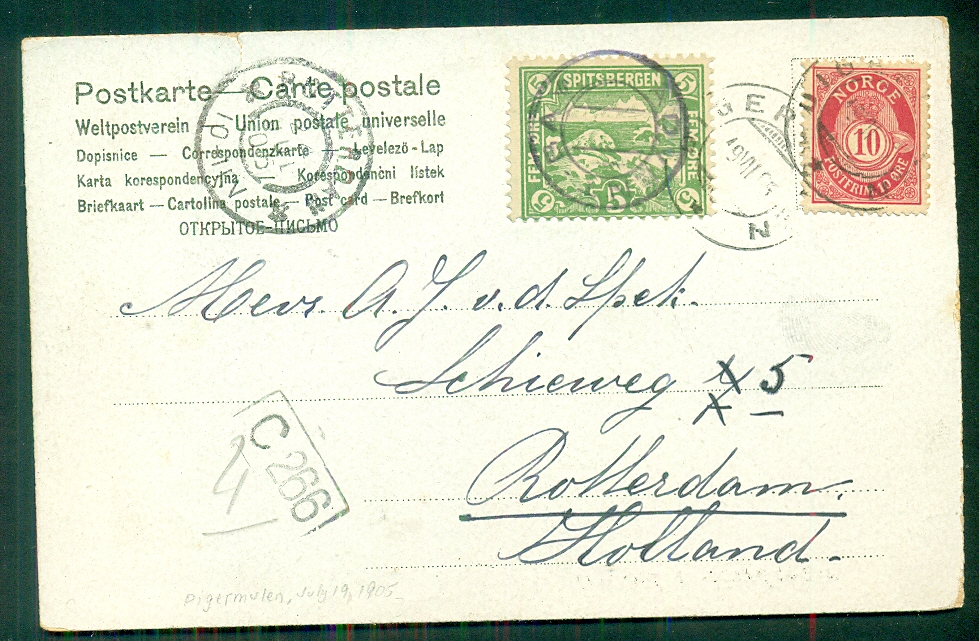 Postkarte — Carte postale
Weltpostverein — Union postale universelle
Dopisnice — Correspondenzkarte — Levelező-Lap
Karta korespondencyjna — Korespondenční lístek
Briefkaart — Cartolina postale — Post card — Brefkort
ОТКРЫТОЕ-ПИСЬМО
ROTTERDAM
SPITSBERGEN
5 5
FEM ØRE FEM ØRE
5 5 5
GER
19 VII 05
N
NORGE
10
POSTFRIM. 10 ØRE
Mevr. A. J. v. d. Spek.
Schieweg 5
Rotterdam.
Holland.
C 266
4
Digermulen, July 19, 1905